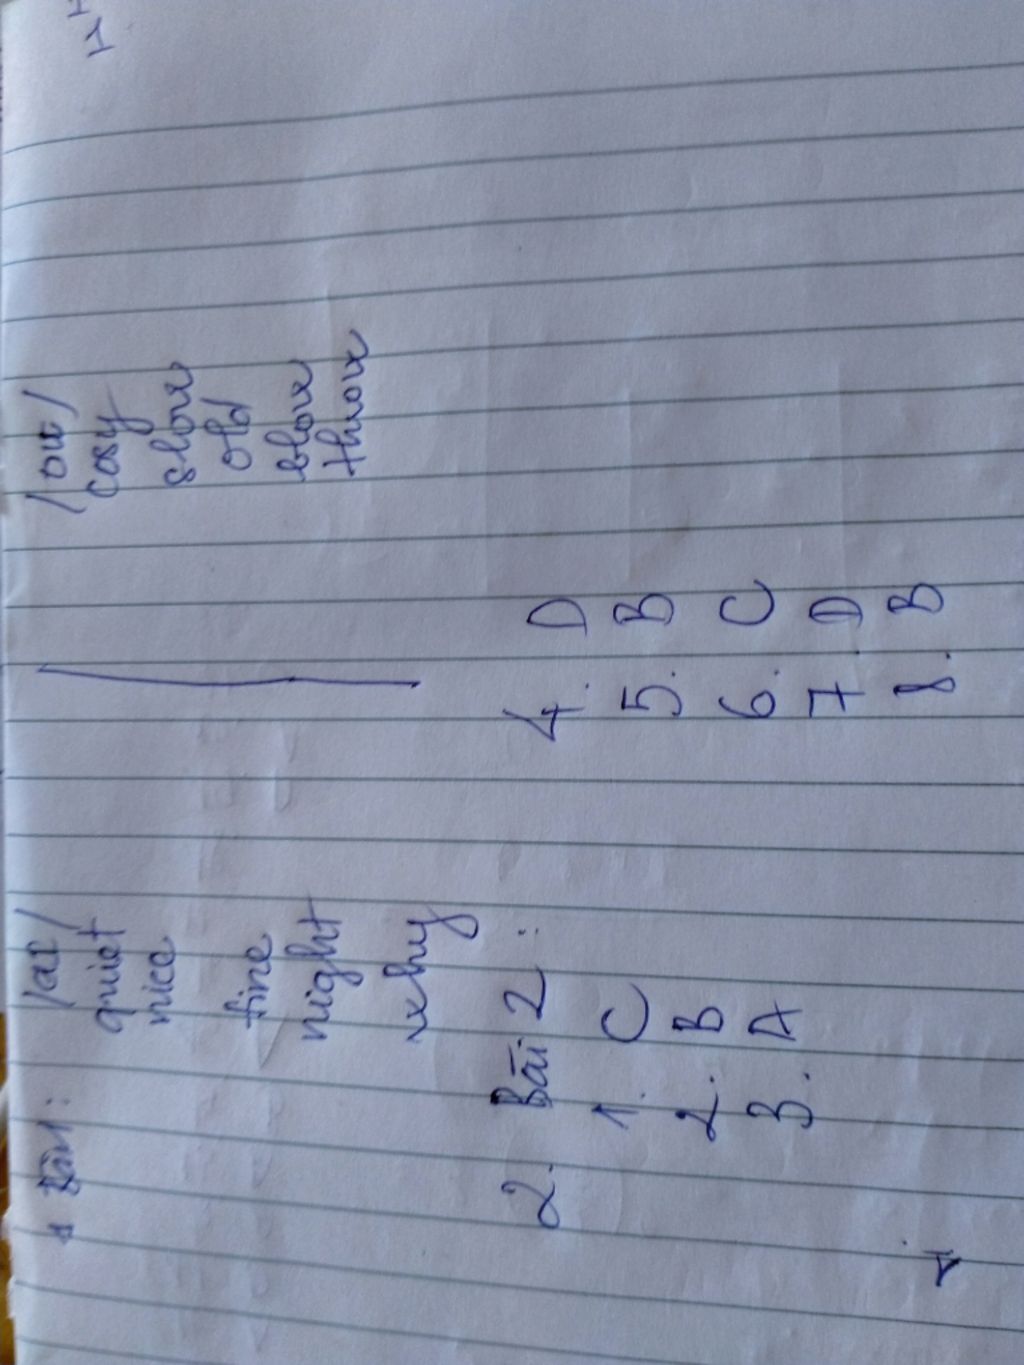 1 Bài 1 :
/aI/ /oʊ/
quiet cosy
nice slow
fine old
night blow
why throw
2. Bài 2 :
1. C 4. D
2. B 5. B
3. A 6. C
7. D
8. B